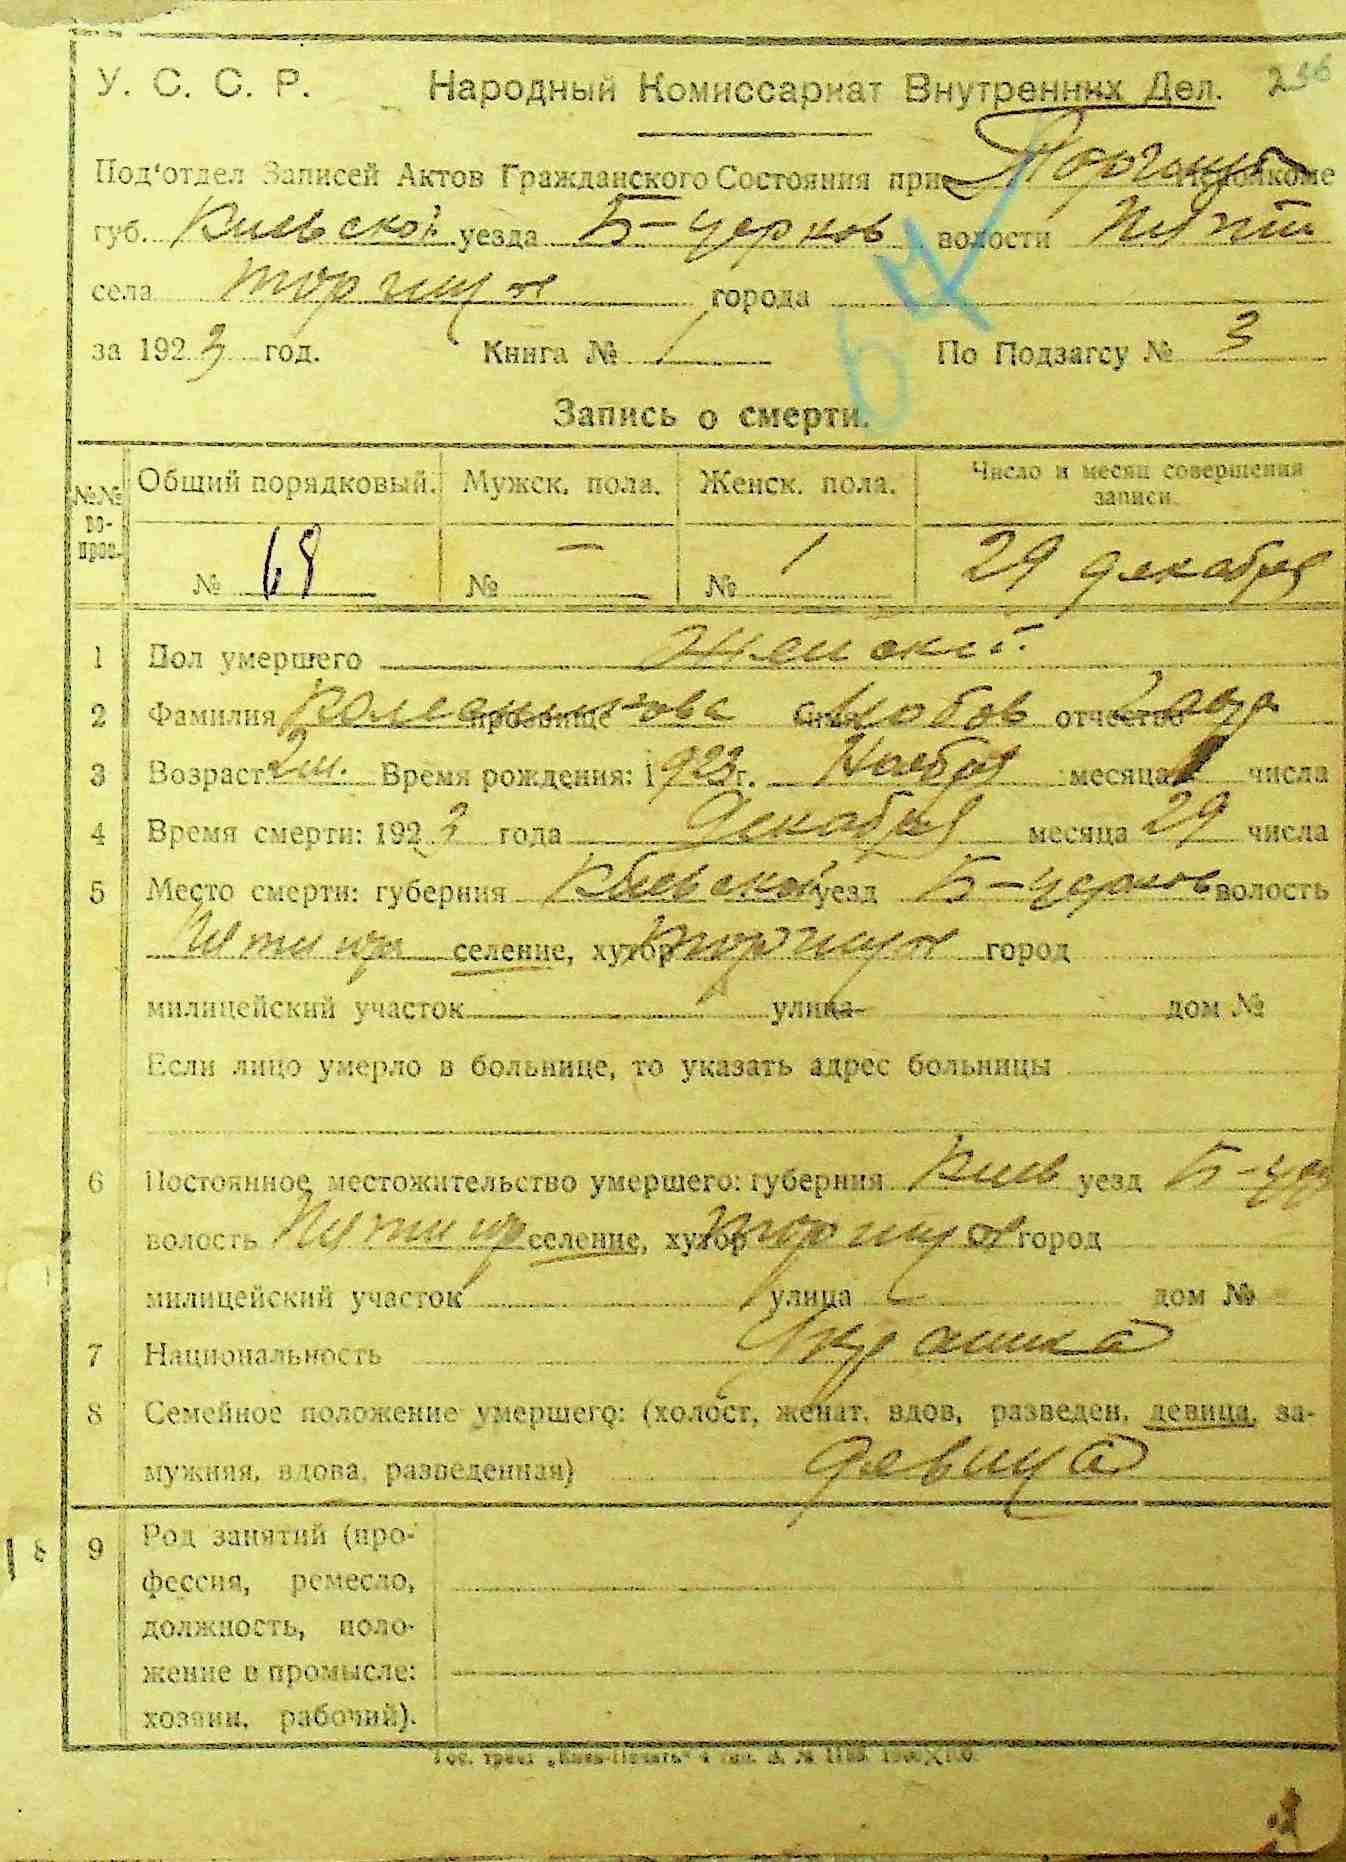 У. С. С. Р. Народный Комиссариат Внутренних Дел. 256
Под'отдел Записей Актов Гражданского Состояния при Исполкоме
губ. Киевской уезда Б-Церков волости
села города
за 1923 год. Книга № 1 По Подзагсу № 3
64
Запись о смерти.
№№ вопрос. Общий порядковый. Мужск. пола. Женск. пола. Число и месяц совершения записи.
№ 69 № — № 1 29 декабря
1 Пол умершего Женский
2 Фамилия прозвище имя отчество
3 Возраст 2 м. Время рождения: 1923 г. Ноября месяца числа
4 Время смерти: 1923 года Декабря месяца 29 числа
5 Место смерти: губерния Киевской уезд Б-Церков волость
селение, хутор город
милицейский участок улица дом №
Если лицо умерло в больнице, то указать адрес больницы
6 Постоянное местожительство умершего: губерния Киев уезд Б-Цер
волость селение, хутор город
милицейский участок улица дом №
7 Национальность Украинка
8 Семейное положение умершего: (холост, женат, вдов, разведен, девица, за-
мужняя, вдова, разведенная) девица
18 9 Род занятий (про-
фессия, ремесло,
должность, поло-
жение в промысле:
хозяин, рабочий).